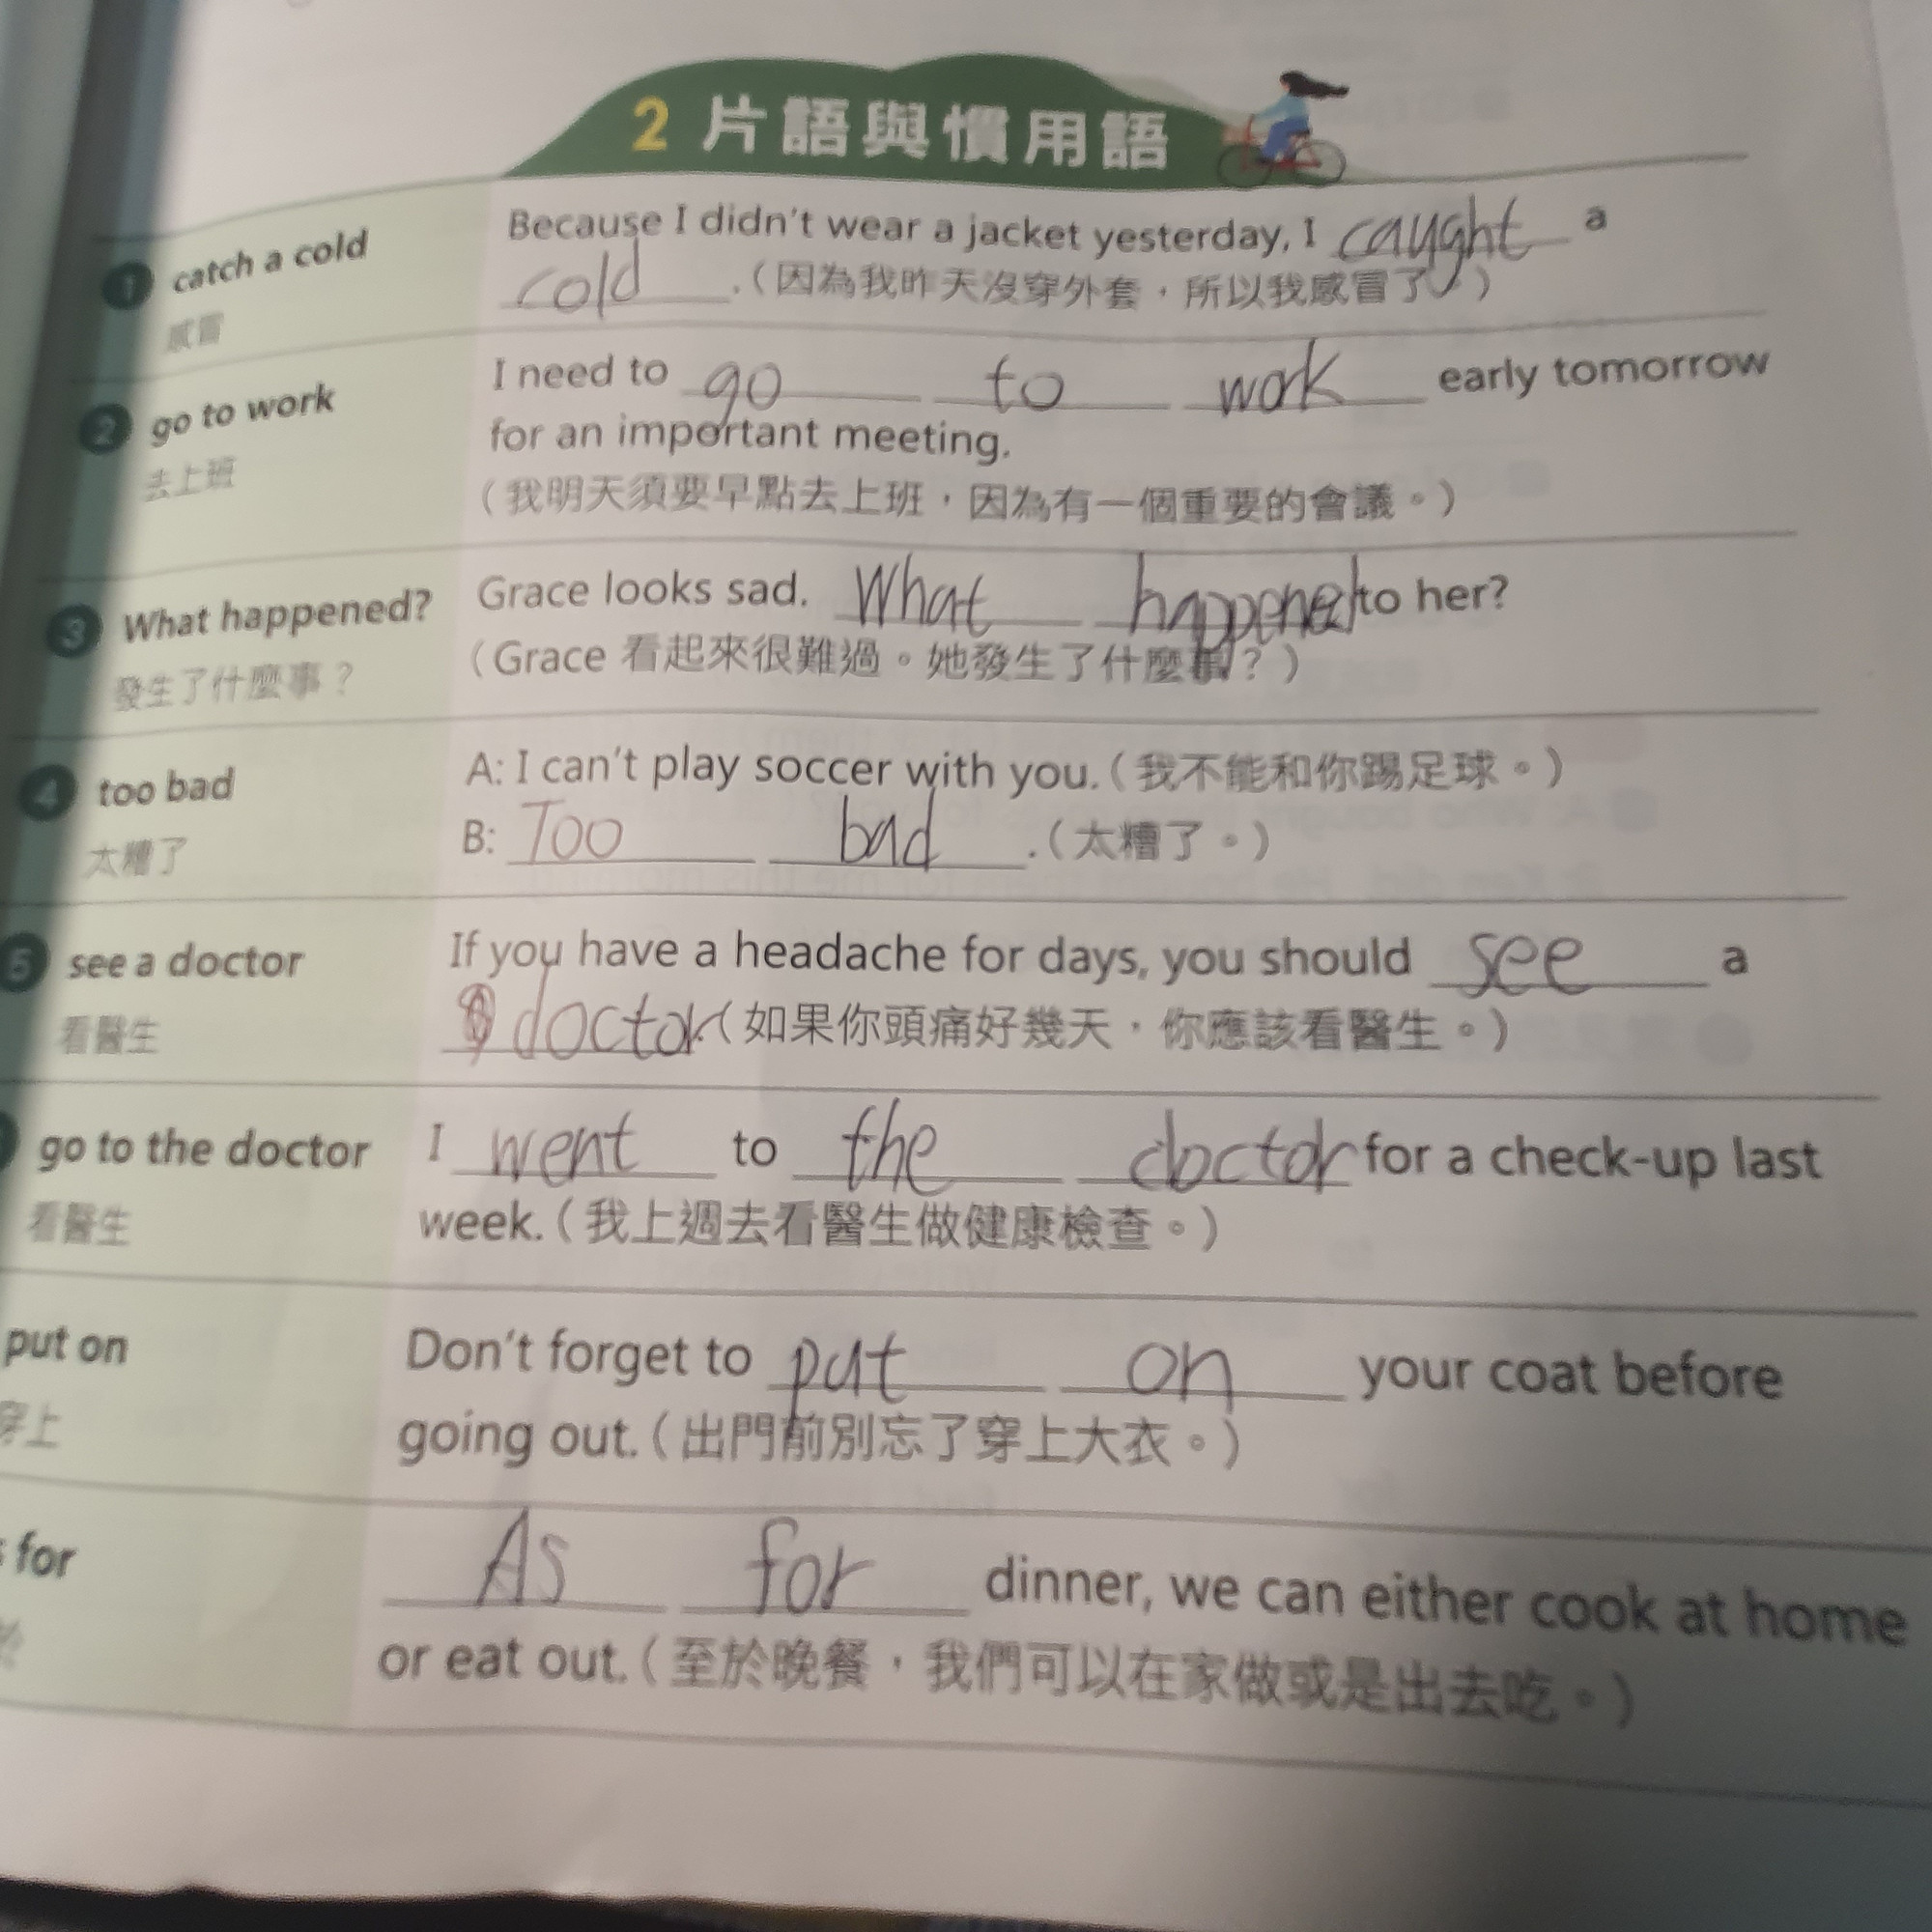 2 片語與慣用語
1 catch a cold
感冒
Because I didn't wear a jacket yesterday, I caught a
cold.(因為我昨天沒穿外套，所以我感冒了。)
2 go to work
去上班
I need to go to work early tomorrow
for an important meeting.
(我明天須要早點去上班，因為有一個重要的會議。)
3 What happened?
發生了什麼事？
Grace looks sad. What happened to her?
(Grace 看起來很難過。她發生了什麼事？)
4 too bad
太糟了
A: I can't play soccer with you.(我不能和你踢足球。)
B: Too bad.(太糟了。)
5 see a doctor
看醫生
If you have a headache for days, you should see a
doctor.(如果你頭痛好幾天，你應該看醫生。)
go to the doctor
看醫生
I went to the doctor for a check-up last
week.(我上週去看醫生做健康檢查。)
put on
穿上
Don't forget to put on your coat before
going out.(出門前別忘了穿上大衣。)
for
As for dinner, we can either cook at home
or eat out.(至於晚餐，我們可以在家做或是出去吃。)